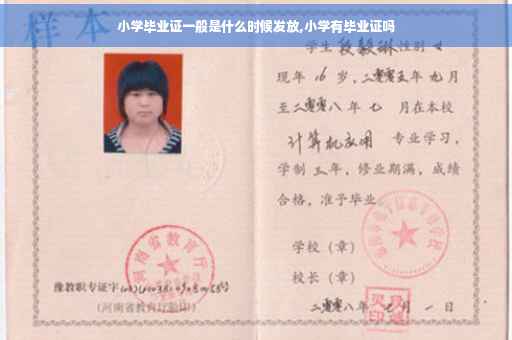 小学毕业证一般是什么时候发放,小学有毕业证吗
样本
学生 段毅琳 性别 女
现年 16 岁，二零零五年 九 月
至二零零八年 七 月在本校
计算机应用 专业学习，
学制 三 年，修业期满，成绩
合格，准予毕业
学校（章）
校长（章）
二零零八年 七 月 一 日
河南省教育厅
豫教职专证字
（河南省教育厅验印）